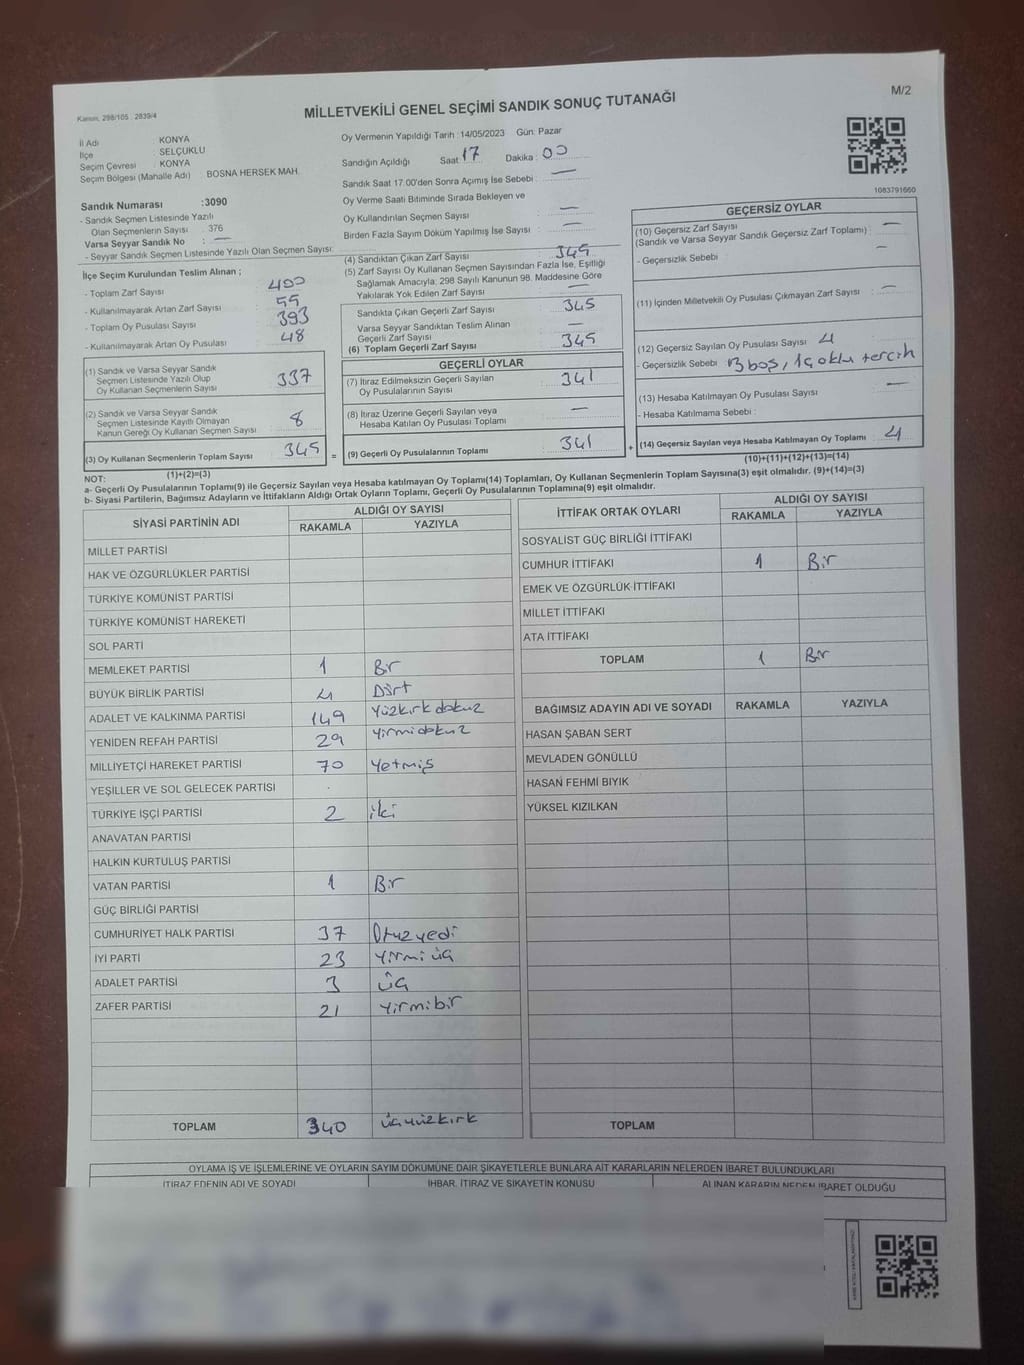 Kanun, 298/105 2839/4
MİLLETVEKİLİ GENEL SEÇİMİ SANDIK SONUÇ TUTANAĞI
M/2
İl Adı : KONYA
İlçe : SELÇUKLU
Seçim Çevresi : KONYA
Seçim Bölgesi (Mahalle Adı) : BOSNA HERSEK MAH.
Sandık Numarası :3090
- Sandık Seçmen Listesinde Yazılı
Olan Seçmenlerin Sayısı : 376
Varsa Seyyar Sandık No : —
- Seyyar Sandık Seçmen Listesinde Yazılı Olan Seçmen Sayısı:
Oy Vermenin Yapıldığı Tarih :14/05/2023 Gün: Pazar
Sandığın Açıldığı Saat: 17 Dakika : 00
Sandık Saat 17.00'den Sonra Açımış İse Sebebi : —
Oy Verme Saati Bitiminde Sırada Bekleyen ve
Oy Kullandırılan Seçmen Sayısı : —
Birden Fazla Sayım Döküm Yapılmış İse Sayısı : —
1083791660
İlçe Seçim Kurulundan Teslim Alınan ;
- Toplam Zarf Sayısı : 400
- Kullanılmayarak Artan Zarf Sayısı : 55
- Toplam Oy Pusulası Sayısı : 393
- Kullanılmayarak Artan Oy Pusulası : 48
(1) Sandık ve Varsa Seyyar Sandık
Seçmen Listesinde Yazılı Olup
Oy Kullanan Seçmenlerin Sayısı : 337
(2) Sandık ve Varsa Seyyar Sandık
Seçmen Listesinde Kayıtlı Olmayan
Kanun Gereği Oy Kullanan Seçmen Sayısı : 8
(3) Oy Kullanan Seçmenlerin Toplam Sayısı : 345
(1)+(2)=(3)
(4) Sandıktan Çıkan Zarf Sayısı : 345
(5) Zarf Sayısı Oy Kullanan Seçmen Sayısından Fazla İse, Eşitliği
Sağlamak Amacıyla, 298 Sayılı Kanunun 98. Maddesine Göre
Yakılarak Yok Edilen Zarf Sayısı : —
Sandıkta Çıkan Geçerli Zarf Sayısı : 345
Varsa Seyyar Sandıktan Teslim Alınan
Geçerli Zarf Sayısı : —
(6) Toplam Geçerli Zarf Sayısı : 345
GEÇERLİ OYLAR
(7) İtiraz Edilmeksizin Geçerli Sayılan
Oy Pusulalarının Sayısı : 341
(8) İtiraz Üzerine Geçerli Sayılan veya
Hesaba Katılan Oy Pusulası Toplamı : —
= (9) Geçerli Oy Pusulalarının Toplamı : 341 +
GEÇERSİZ OYLAR
(10) Geçersiz Zarf Sayısı : —
(Sandık ve Varsa Seyyar Sandık Geçersiz Zarf Toplamı)
- Geçersizlik Sebebi : —
(11) İçinden Milletvekili Oy Pusulası Çıkmayan Zarf Sayısı : —
(12) Geçersiz Sayılan Oy Pusulası Sayısı : 4
- Geçersizlik Sebebi : 3 boş, 1 çoklu tercih
(13) Hesaba Katılmayan Oy Pusulası Sayısı : —
- Hesaba Katılmama Sebebi :
(14) Geçersiz Sayılan veya Hesaba Katılmayan Oy Toplamı : 4
(10)+(11)+(12)+(13)=(14)
NOT:
a- Geçerli Oy Pusulalarının Toplamı(9) ile Geçersiz Sayılan veya Hesaba katılmayan Oy Toplamı(14) Toplamları, Oy Kullanan Seçmenlerin Toplam Sayısına(3) eşit olmalıdır. (9)+(14)=(3)
b- Siyasi Partilerin, Bağımsız Adayların ve İttifakların Aldığı Ortak Oyların Toplamı, Geçerli Oy Pusulalarının Toplamına(9) eşit olmalıdır.
SİYASİ PARTİNİN ADI ALDIĞI OY SAYISI
RAKAMLA YAZIYLA
MİLLET PARTİSİ
HAK VE ÖZGÜRLÜKLER PARTİSİ
TÜRKİYE KOMÜNİST PARTİSİ
TÜRKİYE KOMÜNİST HAREKETİ
SOL PARTİ
MEMLEKET PARTİSİ 1 Bir
BÜYÜK BİRLİK PARTİSİ 4 Dört
ADALET VE KALKINMA PARTİSİ 149 Yüzkırkdokuz
YENİDEN REFAH PARTİSİ 29 Yirmidokuz
MİLLİYETÇİ HAREKET PARTİSİ 70 Yetmiş
YEŞİLLER VE SOL GELECEK PARTİSİ
TÜRKİYE İŞÇİ PARTİSİ 2 iki
ANAVATAN PARTİSİ
HALKIN KURTULUŞ PARTİSİ
VATAN PARTİSİ 1 Bir
GÜÇ BİRLİĞİ PARTİSİ
CUMHURİYET HALK PARTİSİ 37 Otuzyedi
İYİ PARTİ 23 Yirmi üç
ADALET PARTİSİ 3 üç
ZAFER PARTİSİ 21 Yirmibir
TOPLAM 340 üçyüzkırk
İTTİFAK ORTAK OYLARI ALDIĞI OY SAYISI
RAKAMLA YAZIYLA
SOSYALİST GÜÇ BİRLİĞİ İTTİFAKI
CUMHUR İTTİFAKI 1 Bir
EMEK VE ÖZGÜRLÜK İTTİFAKI
MİLLET İTTİFAKI
ATA İTTİFAKI
TOPLAM 1 Bir
BAĞIMSIZ ADAYIN ADI VE SOYADI RAKAMLA YAZIYLA
HASAN ŞABAN SERT
MEVLADEN GÖNÜLLÜ
HASAN FEHMİ BIYIK
YÜKSEL KIZILKAN
TOPLAM
OYLAMA İŞ VE İŞLEMLERİNE VE OYLARIN SAYIM DÖKÜMÜNE DAİR ŞİKAYETLERLE BUNLARA AİT KARARLARIN NELERDEN İBARET BULUNDUKLARI
İTİRAZ EDENİN ADI VE SOYADI İHBAR, İTİRAZ VE ŞİKAYETİN KONUSU ALINAN KARARIN NEDEN İBARET OLDUĞU